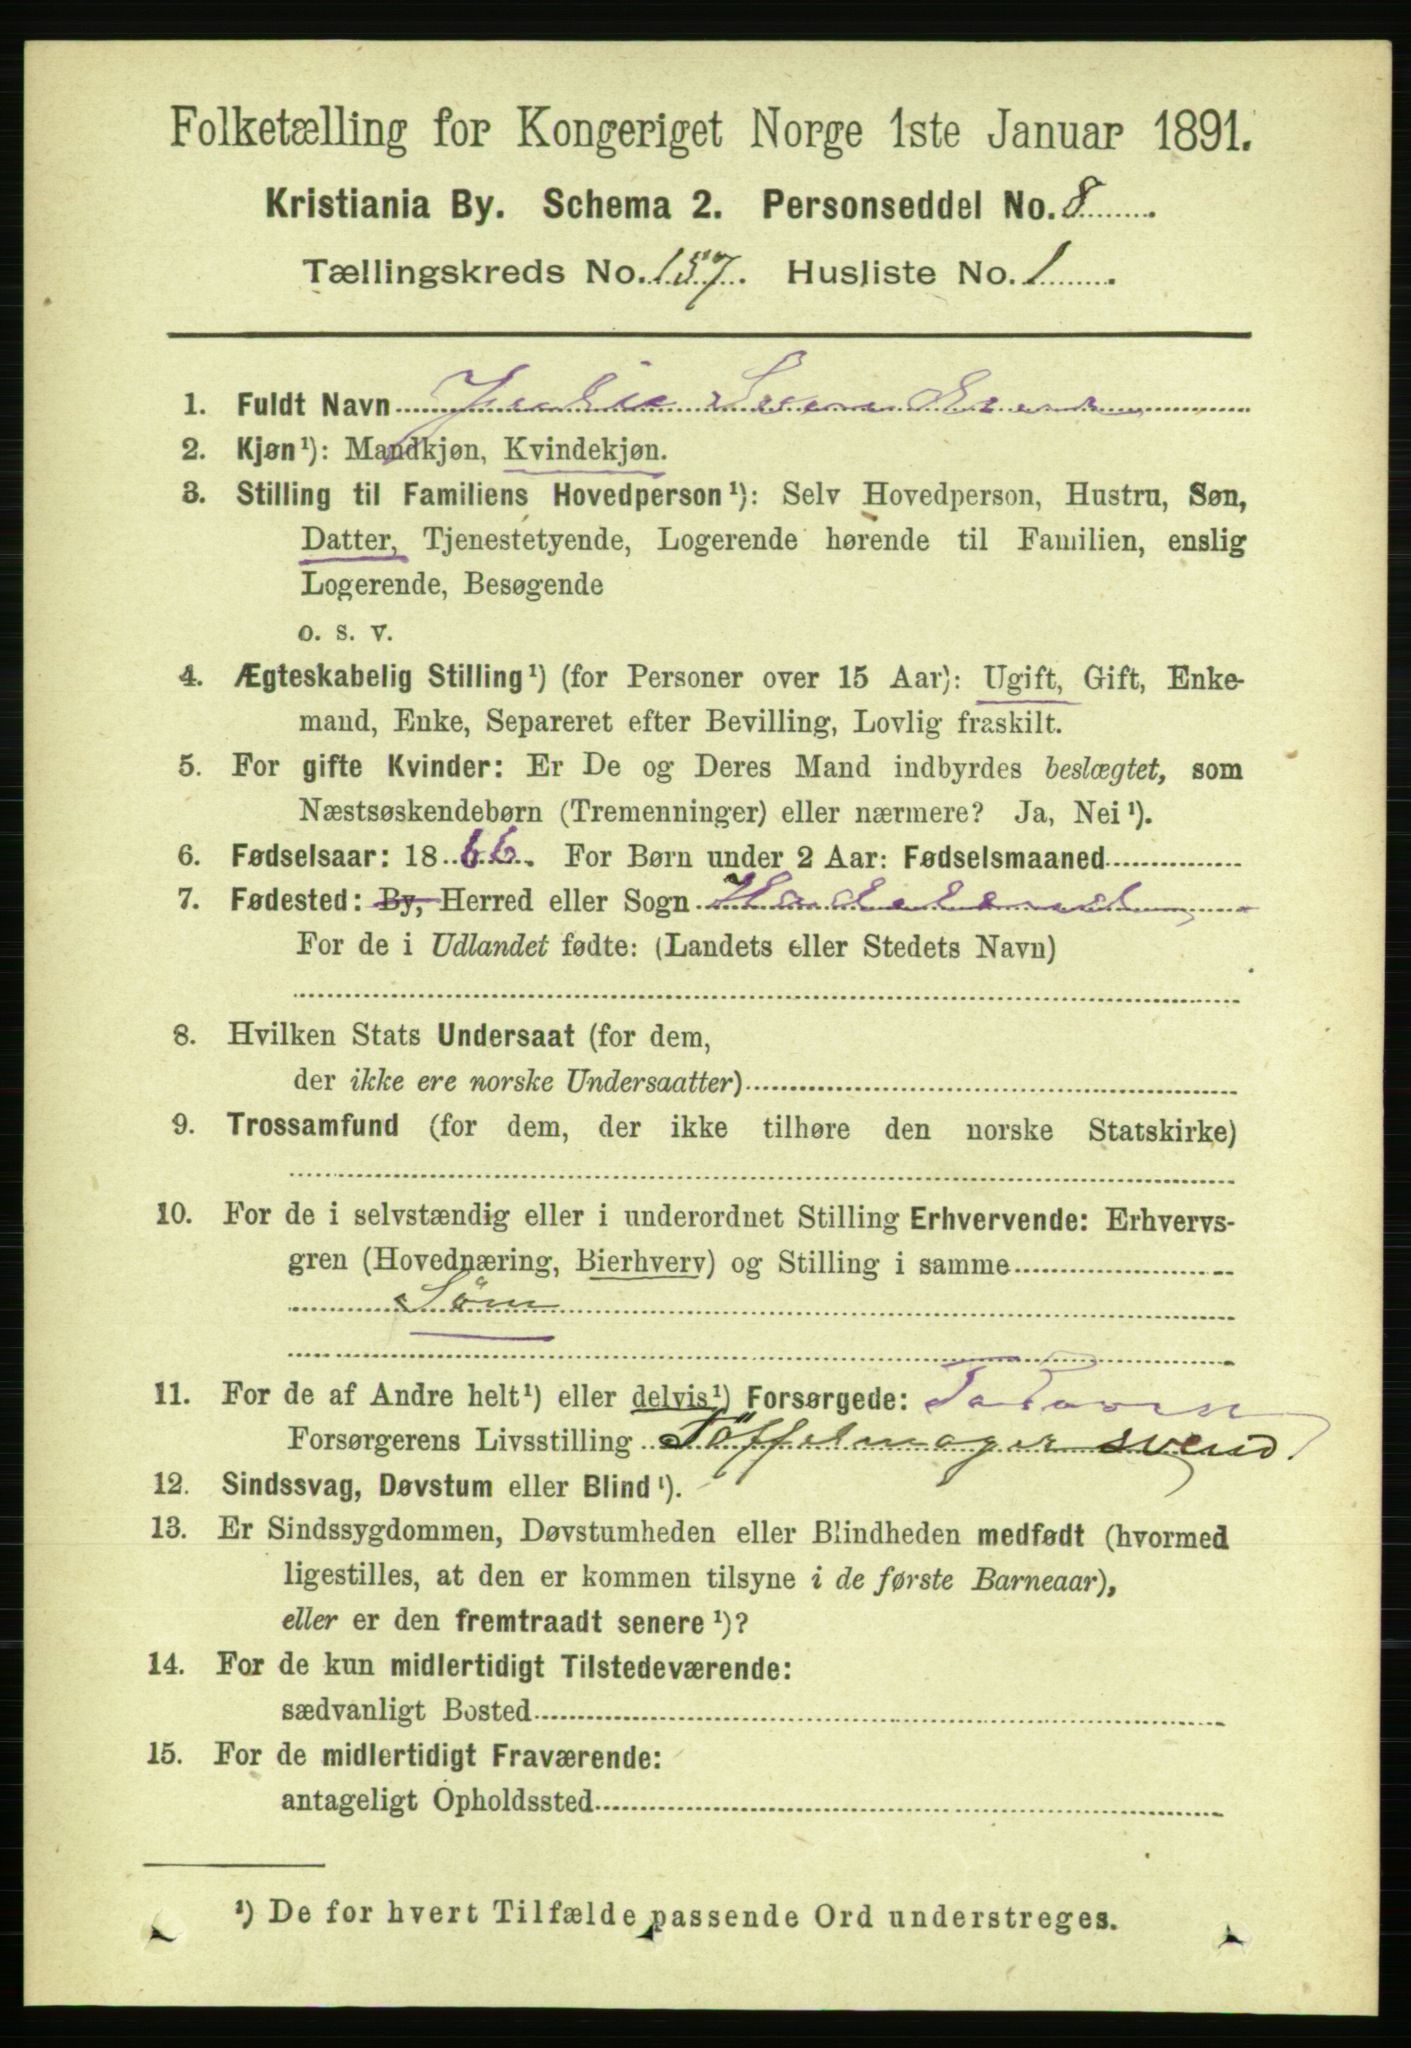 Folketælling for Kongeriget Norge 1ste Januar 1891.
Kristiania By. Schema 2. Personseddel No. 8
Tællingskreds No. 157. Husliste No. 1
1. Fuldt Navn
2. Kjøn¹): Mandkjøn, Kvindekjøn.
3. Stilling til Familiens Hovedperson¹): Selv Hovedperson, Hustru, Søn,
Datter, Tjenestetyende, Logerende hørende til Familien, enslig
Logerende, Besøgende
o. s. v.
4. Ægteskabelig Stilling¹) (for Personer over 15 Aar): Ugift, Gift, Enke-
mand, Enke, Separeret efter Bevilling, Lovlig fraskilt.
5. For gifte Kvinder: Er De og Deres Mand indbyrdes beslægtet, som
Næstsøskendebørn (Tremenninger) eller nærmere? Ja, Nei¹).
6. Fødselsaar: 1866. For Børn under 2 Aar: Fødselsmaaned
7. Fødested: By, Herred eller Sogn Hadeland
For de i Udlandet fødte: (Landets eller Stedets Navn)
8. Hvilken Stats Undersaat (for dem,
der ikke ere norske Undersaatter)
9. Trossamfund (for dem, der ikke tilhøre den norske Statskirke)
10. For de i selvstændig eller i underordnet Stilling Erhvervende: Erhvervs-
gren (Hovednæring, Bierhverv) og Stilling i samme
Söm
11. For de af Andre helt¹) eller delvis¹) Forsørgede:
Forsørgerens Livsstilling Töffelmager svend
12. Sindssvag, Døvstum eller Blind¹).
13. Er Sindssygdommen, Døvstumheden eller Blindheden medfødt (hvormed
ligestilles, at den er kommen tilsyne i de første Barneaar),
eller er den fremtraadt senere¹)?
14. For de kun midlertidigt Tilstedeværende:
sædvanligt Bosted
15. For de midlertidigt Fraværende:
antageligt Opholdssted
¹) De for hvert Tilfælde passende Ord understreges.